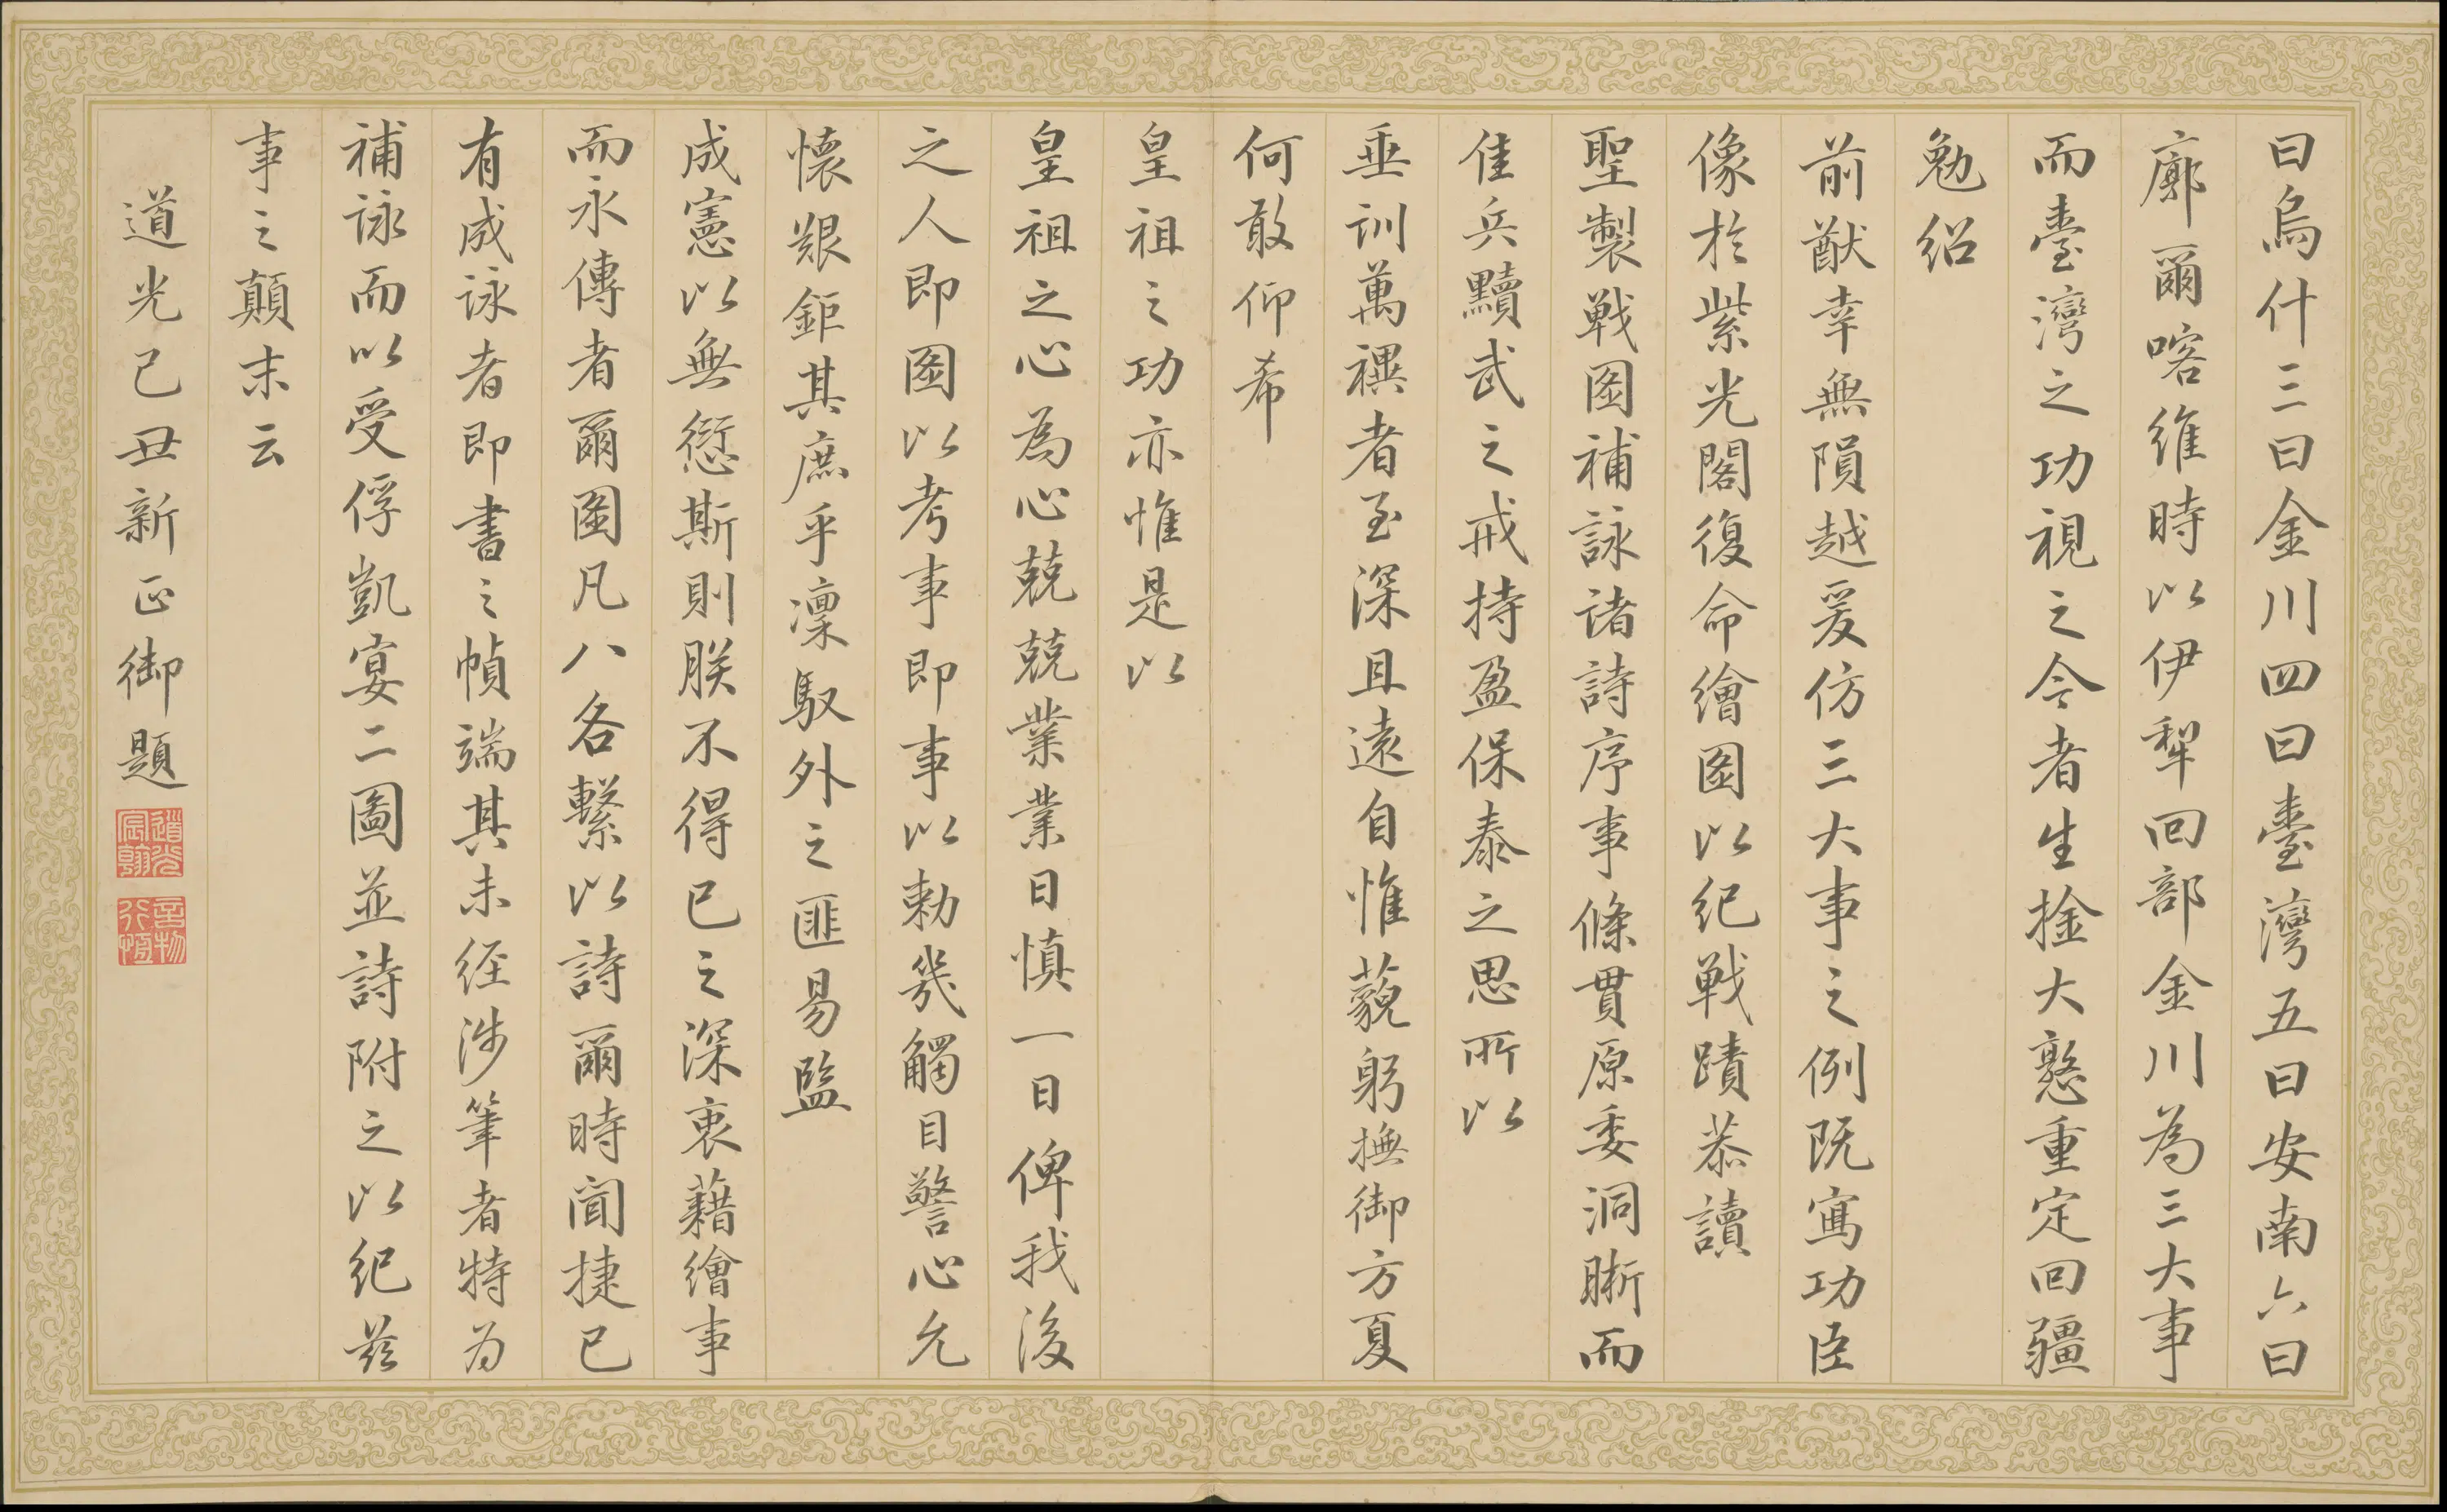 曰烏什三曰金川四曰臺灣五曰安南六曰
廓爾喀維時以伊犂回部金川為三大事
而臺灣之功視之今者生擒大憝重定回疆
勉紹
前猷幸無隕越爰仿三大事之例既寫功臣
像於紫光閣復命繪圖以紀戰蹟恭讀
聖製戰圖補詠諸詩序事條貫原委洞晰而
佳兵黷武之戒持盈保泰之思所以
垂訓萬禩者至深且遠自惟藐躬撫御方夏
何敢仰希
皇祖之功亦惟是以
皇祖之心為心兢兢業業日慎一日俾我後
之人即圖以考事即事以勅幾觸目警心允
懷艱鉅其庶乎凜馭外之匪易監
成憲以無愆斯則朕不得已之深衷藉繪事
而永傳者爾圖凡八各繫以詩爾時聞捷已
有成詠者即書之幀端其未經涉筆者特為
補詠而以受俘凱宴二圖並詩附之以紀茲
事之顛末云
道光己丑新正御題
道光宸翰
言物行恆